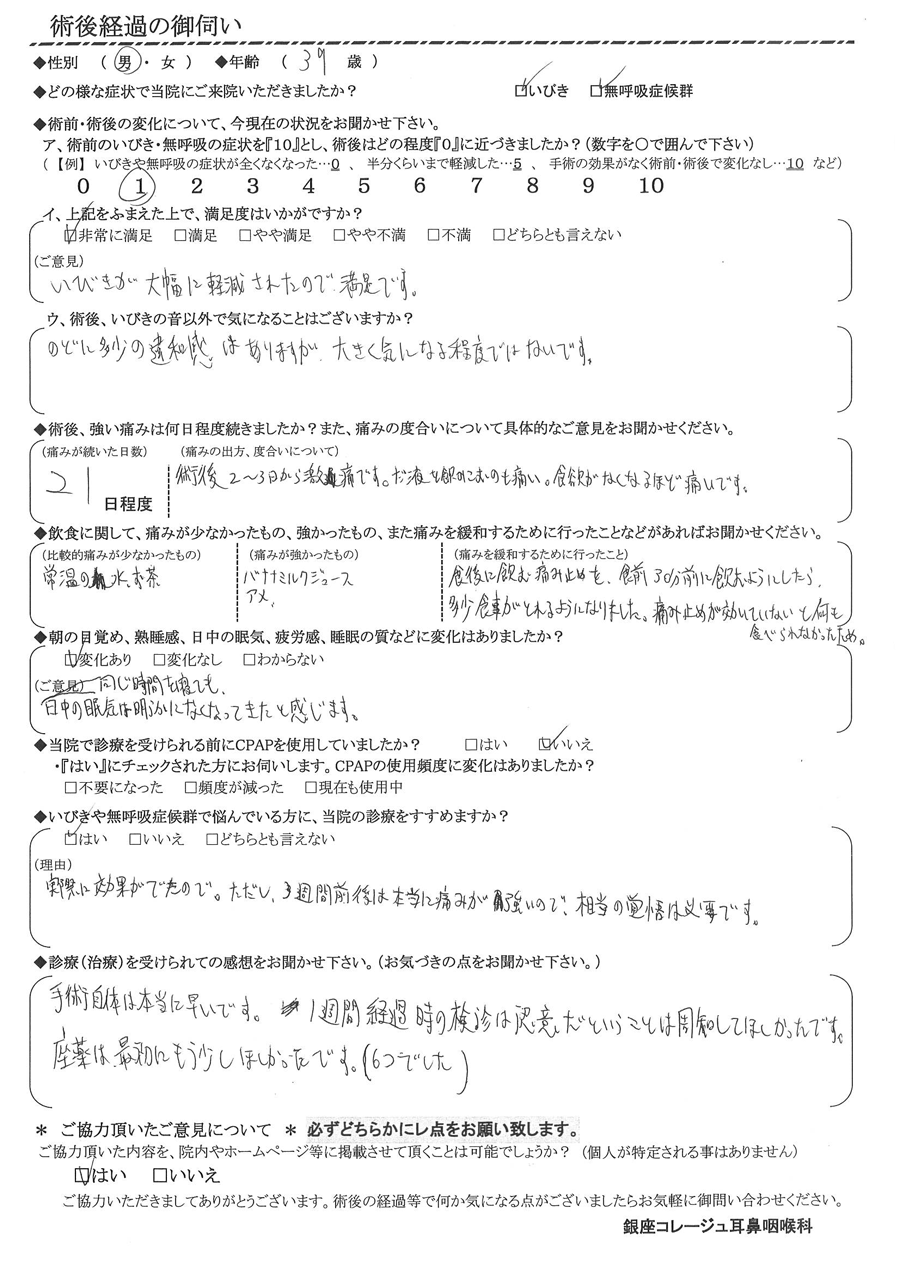 術後経過の御伺い
◆性別 ( 男 ・ 女 ) ◆年齢 ( 39 歳 )
◆どの様な症状で当院にご来院いただきましたか? ☑いびき ☑無呼吸症候群
◆術前・術後の変化について、今現在の状況をお聞かせ下さい。
ア、術前のいびき・無呼吸の症状を『10』とし、術後はどの程度『0』に近づきましたか?(数字を○で囲んで下さい)
(【例】いびきや無呼吸の症状が全くなくなった…0 、 半分くらいまで軽減した…5 、 手術の効果がなく術前・術後で変化なし…10 など)
0 1 2 3 4 5 6 7 8 9 10
イ、上記をふまえた上で、満足度はいかがですか?
☑非常に満足 □満足 □やや満足 □やや不満 □不満 □どちらとも言えない
(ご意見)
いびきが大幅に軽減されたので満足です。
ウ、術後、いびきの音以外で気になることはございますか?
のどに多少の違和感はありますが、大きく気になる程度ではないです。
◆術後、強い痛みは何日程度続きましたか?また、痛みの度合いについて具体的なご意見をお聞かせください。
(痛みが続いた日数) (痛みの出方、度合いについて)
21日程度 術後2～3日から激痛です。だ液を飲みこむのも痛い。食欲がなくなるほど痛いです。
◆飲食に関して、痛みが少なかったもの、強かったもの、また痛みを緩和するために行ったことなどがあればお聞かせください。
(比較的痛みが少なかったもの) (痛みが強かったもの) (痛みを緩和するために行ったこと)
常温の水、お茶 バナナミルクジュース 食後に飲む痛み止めを、食前30分前に飲むようにしたら、
アメ、 多少食事がとれるようになりました。痛み止めが効いていないと何も
食べられなかったため。
◆朝の目覚め、熟睡感、日中の眠気、疲労感、睡眠の質などに変化はありましたか?
☑変化あり □変化なし □わからない
(ご意見) 同じ時間を寝ても、
日中の眠気は明らかになくなってきたと感じます。
◆当院で診療を受けられる前にCPAPを使用していましたか? □はい ☑いいえ
・『はい』にチェックされた方にお伺いします。CPAPの使用頻度に変化はありましたか?
□不要になった □頻度が減った □現在も使用中
◆いびきや無呼吸症候群で悩んでいる方に、当院の診療をすすめますか?
☑はい □いいえ □どちらとも言えない
(理由)
実際に効果がでたので。ただし、3週間前後は本当に痛みが強いので、相当の覚悟は必要です。
◆診療(治療)を受けられての感想をお聞かせ下さい。(お気づきの点をお聞かせ下さい。)
手術自体は本当に早いです。 1週間経過時の検診は任意だということは周知してほしかったです。
座薬は、最初にもう少しほしかったです。(6つでした)
＊ ご協力頂いたご意見について ＊ 必ずどちらかにレ点をお願い致します。
ご協力頂いた内容を、院内やホームページ等に掲載させて頂くことは可能でしょうか? (個人が特定される事はありません)
☑はい □いいえ
ご協力いただきましてありがとうございます。術後の経過等で何か気になる点がございましたらお気軽に御問い合わせください。
銀座コレージュ耳鼻咽喉科